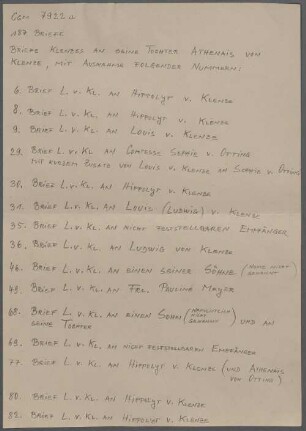 Cgm 7922 a
187 Briefe
Briefe Klenzes an seine Tochter Athenais von
Klenze, mit Ausnahme folgender Nummern:
6. Brief L. v. Kl. an Hippolyt v. Klenze
8. Brief L. v. Kl. an Hippolyt v. Klenze
9. Brief L. v. Kl. an Louis v. Klenze
Brief L. v. Kl. an Comtesse Sophie v. Otting
mit kurzem Zusatz von Louis v. Klenze an Sophie v. Otting
30. Brief L. v. Kl. an Hippolyt v. Klenze
31. Brief L. v. Kl. an Louis (Ludwig) v. Klenze
35. Brief L. v. Kl. an nicht feststellbaren Empfänger
36. Brief L. v. Kl. an Ludwig von Klenze
46. Brief L. v. Kl. an einen seiner Söhne (nicht genannt)
49. Brief L. v. Kl. an Frl. Pauline Mayer
68. Brief L. v. Kl. an einen Sohn (namentlich nicht genannt) und an
seine Tochter
69. Brief L. v. Kl. an nicht feststellbaren Empfänger
77. Brief L. v. Kl. an Hippolyt v. Klenze (und Athenais
von Otting)
80. Brief L. v. Kl. an Hippolyt v. Klenze
82. Brief L. v. Kl. an Hippolyt v. Klenze